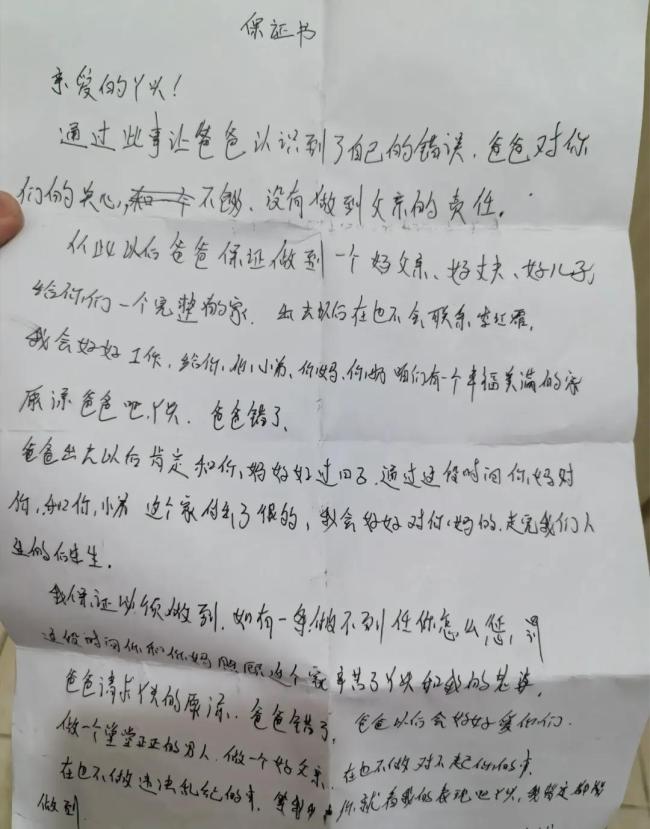 保证书
亲爱的丫头!
通过此事让爸爸认识到了自己的错误.爸爸对你
们的关心,不够、没有做到父亲的责任。
从此以后爸爸保证做到一个好父亲、好丈夫、好儿子,
给你们一个完整的家.出去以后在也不会联系
我会好好工作,给你,和小弟、你妈、你奶 咱们有一个幸福美满的家
原谅爸爸吧,丫头.爸爸错了、
爸爸出去以后肯定和你妈好好过日子.通过这段时间你妈对
你,和你小弟 这个家付出了很多,我会好好对你妈的.走完我们人
生的后半生.
我保证必须做到.如有一条做不到任你怎么惩罚
这段时间你和你妈照顾这个家辛苦了丫头和我的老婆.
爸爸请求丫头的原谅.爸爸错了, 爸爸以后会好好爱你们.
做一个堂堂正正的男人.做一个好父亲. 在也不做对不起你们的事.
在也不做违法乱纪的事. 你就看我的表现吧丫头,我肯定都能
做到.